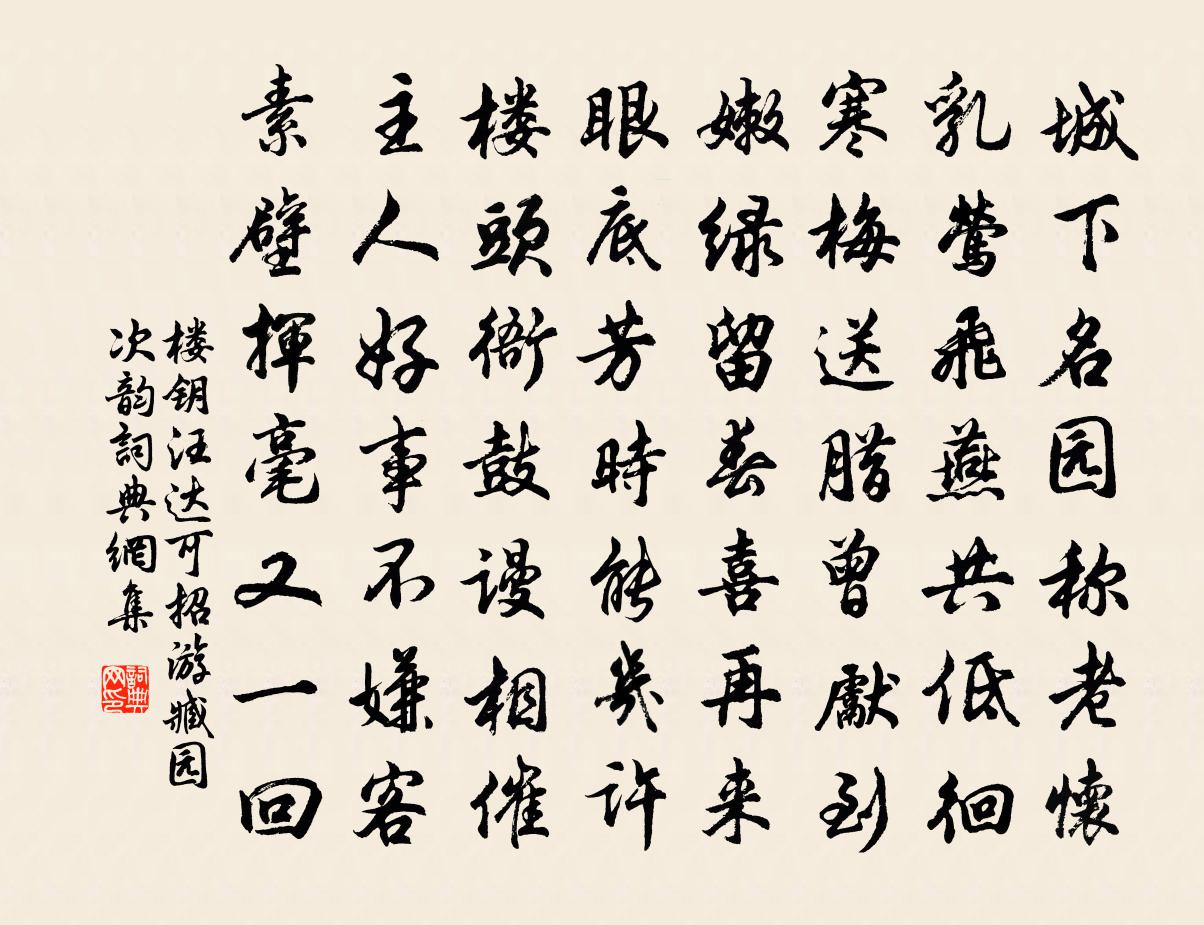 城下名园称老懷
乳鶯飛燕共低徊
寒梅送腊曾獻到
嫩绿留春喜再来
眼底芳時能幾许
楼頭衙鼓謾相催
主人好事不嫌客
素壁揮毫又一回
楼钥汪达可招游臧园
次韵詞典網集
詞典网印